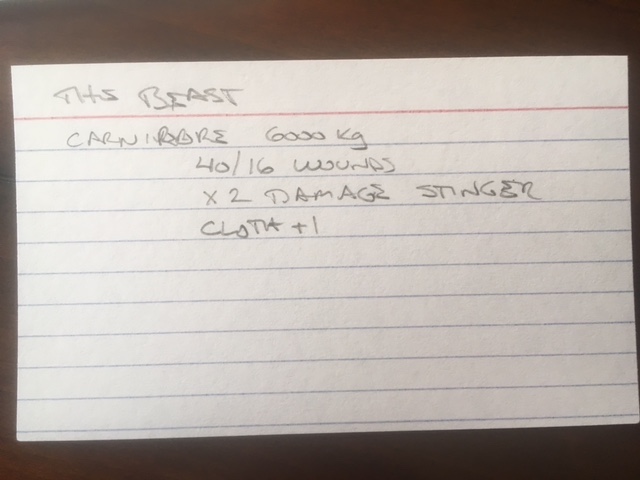 THE BEAST
CARNIVORE 6000 kg
40/16 WOUNDS
x 2 DAMAGE STINGER
CLOTH +1